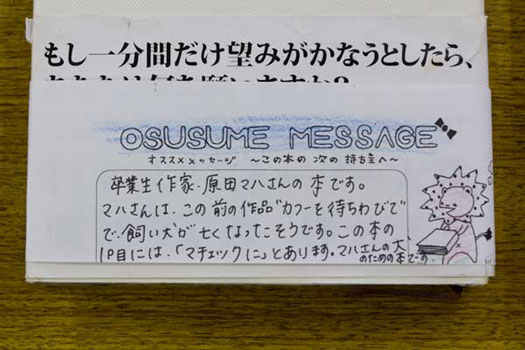 もし一分間だけ望みがかなうとしたら、
あなたは何を願いますか?
OSUSUME MESSAGE
オススメメッセージ 〜この本の次の持ち主へ〜
卒業生作家・原田マハさんの本です。
マハさんは、この前の作品"カフーを待ちわびて"
で、飼い犬が亡くなったそうです。この本の
1P目には、「マチェックに」とあります。マハさんの犬
のための本です。